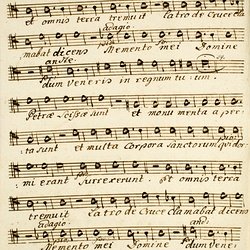 et omnis terra tremuit Latro de Cruce cla
Adagio
mabat dicens Memento mei Domine
andte
dum veneris in regnum tuum.
Petræ Scissæ sunt et monumenta aper:
ta sunt et multa Corpora Sanctorum qui dor:
mierant Surrexerunt. et omnis terra
tremuit Latro de Cruce clamabat dicens
Adagio andte
Memento mei Domine dum veni: